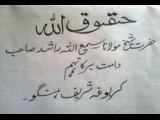 حقوق اللہ
حضرت شیخ مولانا سمیع اللہ راشد صاحب
دامت برکاتہم
کربوغہ شریف ہنگو۔